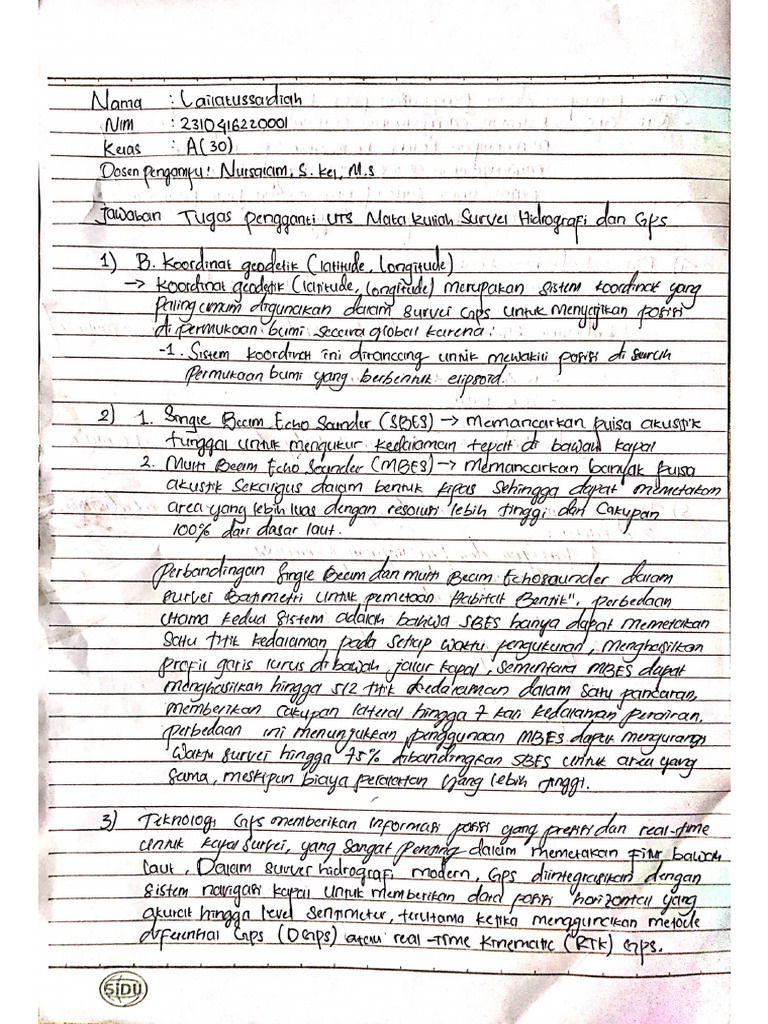 Nama : Lailatussardiah
Nim : 2310416220001
Kelas : A(30)
Dosen pengampu : Nursalam, S.Kel, M.S
Jawaban Tugas Pengganti UTS Mata Kuliah Survei Hidrografi dan GPS
1) B. Koordinat geodetik (latitude, Longitude)
→ Koordinat geodetik (latitude, longitude) merupakan sistem koordinat yang
paling umum digunakan dalam survei GPS untuk menyajikan posisi
di permukaan bumi secara global karena :
-1. Sistem koordinat ini dirancang untuk mewakili posisi di seluruh
permukaan bumi yang berbentuk elipsoid.
2) 1. Single Beam Echo Sounder (SBES) → memancarkan pulsa akustik
tunggal untuk mengukur kedalaman tepat di bawah kapal
2. Multi Beam Echo Sounder (MBES) → memancarkan banyak pulsa
akustik sekaligus dalam bentuk kipas sehingga dapat memetakan
area yang lebih luas dengan resolusi lebih tinggi dan Cakupan
100% dari dasar laut.
Perbandingan Single Beam dan multi Beam Echosounder dalam
survei Batimetri untuk pemetaan Habitat Bentik", perbedaan
utama kedua sistem adalah bahwa SBES hanya dapat memetakan
satu titik kedalaman pada setiap waktu pengukuran, menghasilkan
profil garis lurus di bawah jalur kapal, sementara MBES dapat
menghasilkan hingga 512 titik kedalaman dalam satu pancaran,
memberikan cakupan lateral hingga 7 kali kedalaman perairan.
perbedaan ini menunjukkan penggunaan MBES dapat mengurangi
waktu survei hingga 75% dibandingkan SBES untuk area yang
sama, meskipun biaya peralatan yang lebih tinggi.
3) Teknologi GPS memberikan informasi posisi yang presisi dan real-time
untuk kapal survei, yang sangat penting dalam memetakan fitur bawah
laut, Dalam survei hidrografi modern, GPS diintegrasikan dengan
sistem navigasi kapal untuk memberikan data posisi horizontal yang
akurat hingga level sentimeter, terutama ketika menggunakan metode
diferential GPS (DGPS) atau real-Time Kinematic (RTK) GPS.
SiDU